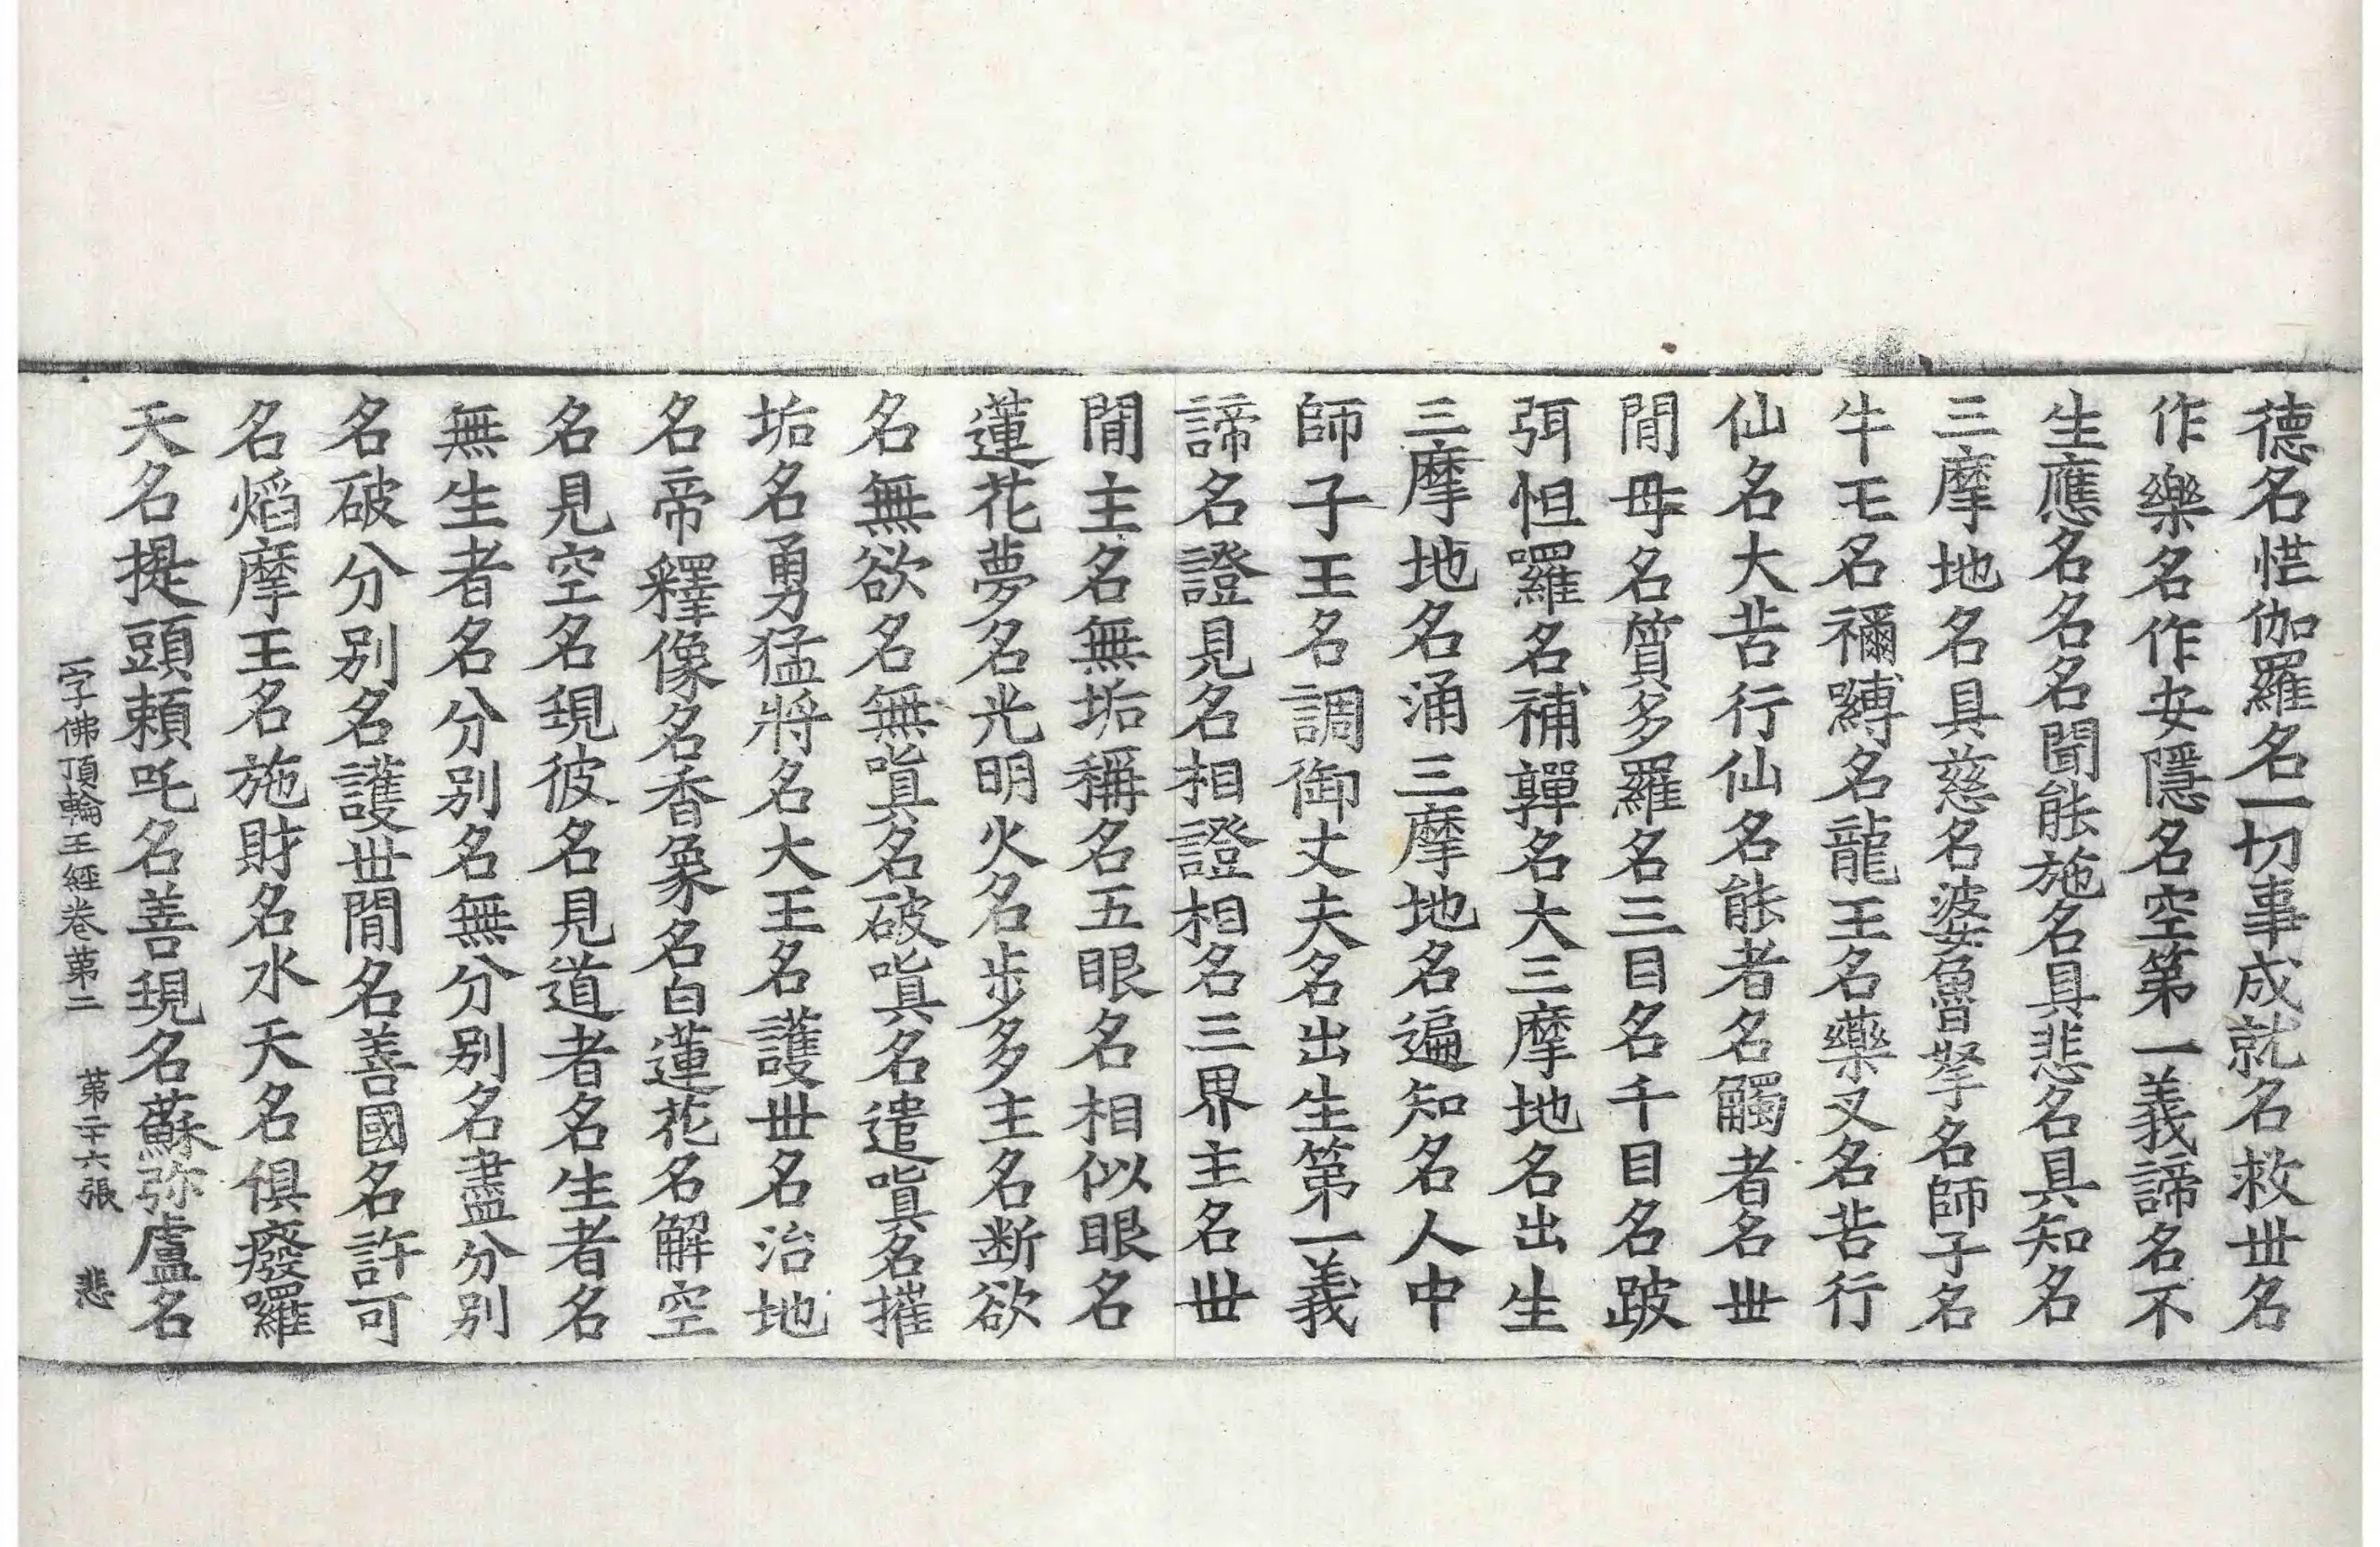 德名恾伽羅名一切事成就名救丗名
作樂名作安隱名空第一義諦名不
生應名名名聞能施名具悲名具知名
三摩地名具慈名婆魯拏名師子名
牛王名禰嚩名龍王名藥叉名苦行
仙名大苦行仙名能者名觸者名丗
閒母名質多羅名三目名千目名跛
弭怛囉名補嚲名大三摩地名出生
三摩地名涌三摩地名遍知名人中
師子王名調御丈夫名出生第一義
諦名證見名相證相名三界主名丗
閒主名無垢稱名五眼名相似眼名
蓮花夢名光明火名步多主名断欲
名無欲名無嗔名破嗔名遣嗔名摧
垢名勇猛將名大王名護丗名治地
名帝釋像名香象名白蓮花名解空
名見空名現彼名見道者名生者名
無生者名分别名無分别名盡分别
名破分别名護丗閒名善國名許可
名焰摩王名施財名水天名俱癈囉
天名提頭頼吒名善現名蘇弥盧名
一字佛頂輪王經卷第二　第二十六張　悲